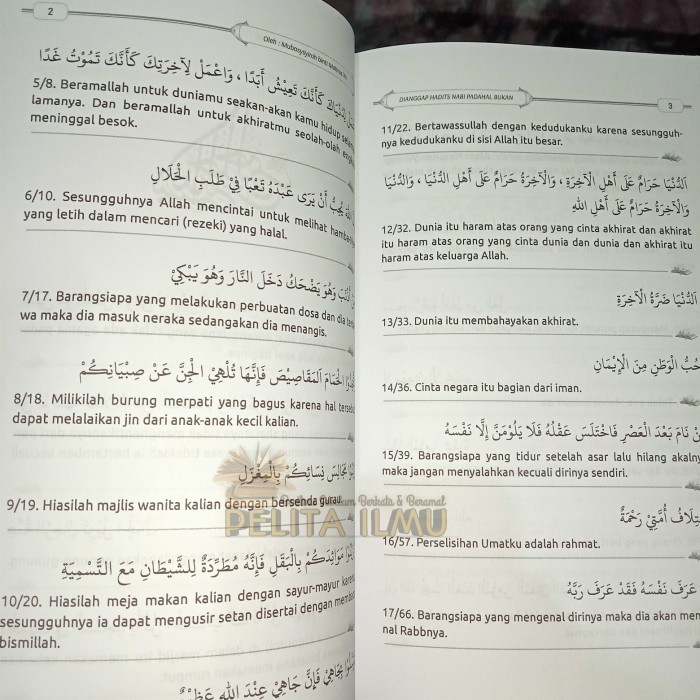 2
Oleh : Mubasysyiroh binti
كَأَنَّكَ تَعِيْشُ أَبَدًا ، وَاعْمَلْ لِآخِرَتِكَ كَأَنَّكَ تَمُوْتُ غَدًا
5/8. Beramallah untuk duniamu seakan-akan kamu hidup
lamanya. Dan beramallah untuk akhiratmu seolah-olah
meninggal besok.
يُحِبُّ أَنْ يَرَى عَبْدَهُ تَعْبًا فِيْ طَلَبِ الْحَلَالِ
6/10. Sesungguhnya Allah mencintai untuk melihat
yang letih dalam mencari (rezeki) yang halal.
وَهُوَ يَضْحَكُ دَخَلَ النَّارَ وَهُوَ يَبْكِيْ
7/17. Barangsiapa yang melakukan perbuatan dosa dan dia
wa maka dia masuk neraka sedangakan dia menangis.
الْحَمَامَ الْمَقَاصِيْصَ فَإِنَّهَا تُلْهِي الْجِنَّ عَنْ صِبْيَانِكُمْ
8/18. Milikilah burung merpati yang bagus karena hal
dapat melalaikan jin dari anak-anak kecil kalian.
مَجَالِسَ نِسَائِكُمْ بِالْمِغْزَلِ
9/19. Hiasilah majlis wanita kalian dengan bersenda gurau.
مَوَائِدَكُمْ بِالْبَقْلِ فَإِنَّهُ مُطْرَدَةٌ لِلشَّيْطَانِ مَعَ التَّسْمِيَةِ
10/20. Hiasilah meja makan kalian dengan sayur-mayur
sesungguhnya ia dapat mengusir setan disertai dengan
bismillah.
بِجَاهِيْ فَإِنَّ جَاهِيْ عِنْدَ اللهِ عَظِيْمٌ
DIANGGAP HADITS NABI PADAHAL BUKAN
3
11/22. Bertawassullah dengan kedudukanku karena sesungguh-
nya kedudukanku di sisi Allah itu besar.
اَلدُّنْيَا حَرَامٌ عَلَى أَهْلِ الْآخِرَةِ ، وَالْآخِرَةُ حَرَامٌ عَلَى أَهْلِ الدُّنْيَا ، وَالدُّنْيَا
وَالْآخِرَةُ حَرَامٌ عَلَى أَهْلِ اللهِ
12/32. Dunia itu haram atas orang yang cinta akhirat dan akhirat
itu haram atas orang yang cinta dunia dan dunia dan akhirat itu
haram atas keluarga Allah.
اَلدُّنْيَا ضَرَّةُ الْآخِرَةِ
13/33. Dunia itu membahayakan akhirat.
حُبُّ الْوَطَنِ مِنَ الْإِيْمَانِ
14/36. Cinta negara itu bagian dari iman.
نَامَ بَعْدَ الْعَصْرِ فَاخْتَلَسَ عَقْلُهُ فَلَا يَلُوْمَنَّ إِلَّا نَفْسَهُ
15/39. Barangsiapa yang tidur setelah asar lalu hilang akalny
maka jangan menyalahkan kecuali dirinya sendiri.
أُمَّتِيْ رَحْمَةٌ
16/57. Perselisihan Umatku adalah rahmat.
عَرَفَ نَفْسَهُ فَقَدْ عَرَفَ رَبَّهُ
17/66. Barangsiapa yang mengenal dirinya maka dia akan men
nal Rabbnya.
Berkata & Beramal
PELITA ILMU